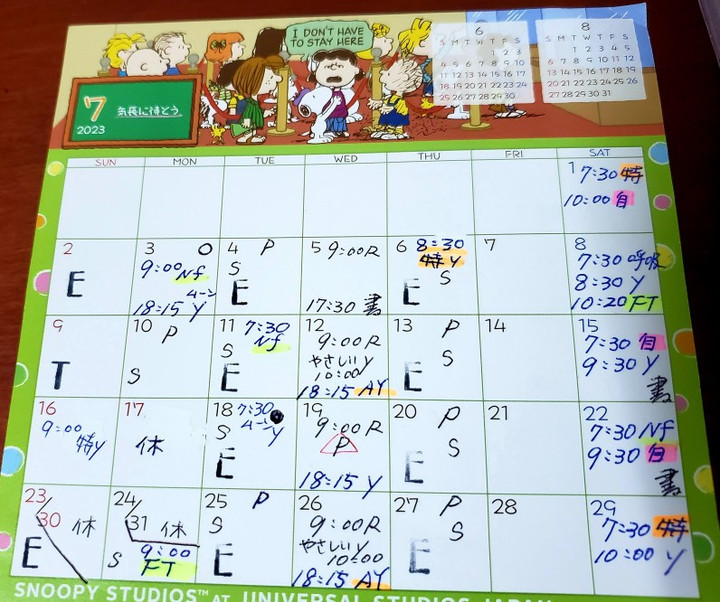 I DON'T HAVE
TO STAY HERE
7
2023
気長に待とう
6
S M T W T F S
1 2 3
4 5 6 7 8 9 10
11 12 13 14 15 16 17
18 19 20 21 22 23 24
25 26 27 28 29 30
8
S M T W T F S
1 2 3 4 5
6 7 8 9 10 11 12
13 14 15 16 17 18 19
20 21 22 23 24 25 26
27 28 29 30 31
SUN MON TUE WED THU FRI SAT
1 7:30 特
10:00 自
2
E
3
9:00 Nf
ムーン
18:15 Y
4 P
S
E
5 9:00R
17:30 書
6 8:30
特Y
S
E
7
8
7:30 呼吸
8:30 Y
10:20 FT
9
T
10 P
S
11 7:30
Nf
S
E
12
9:00R
やさしいY
10:00
18:15 AY
13 P
S
E
14
15
7:30 自
9:30 Y
書
16
9:00
特Y
17
休
18 7:30
ムーン
Y
S
E
19
9:00R
P
18:15 Y
20 P
S
E
21
22
7:30 Nf
9:30 自
書
23/30 休
E
24/31 休
S 9:00
FT
25 P
S
E
26
9:00R
やさしいY
10:00
18:15 AY
27 P
S
E
28
29
7:30 特
10:00 Y
SNOOPY STUDIOS™ AT UNIVERSAL STUDIOS JAPAN